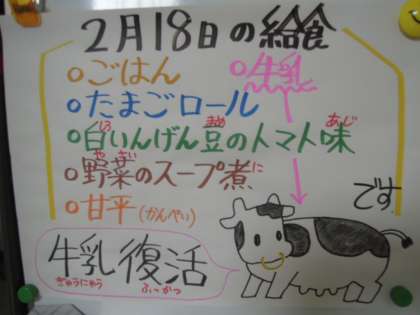 2月18日の給食
○ごはん ○牛乳
○たまごロール
しろ まめ あじ
○白いんげん豆のトマト味
や さい に
○野菜のスープ煮
○甘平(かんぺい)
です
牛乳復活
ぎゅうにゅう ふっかつ